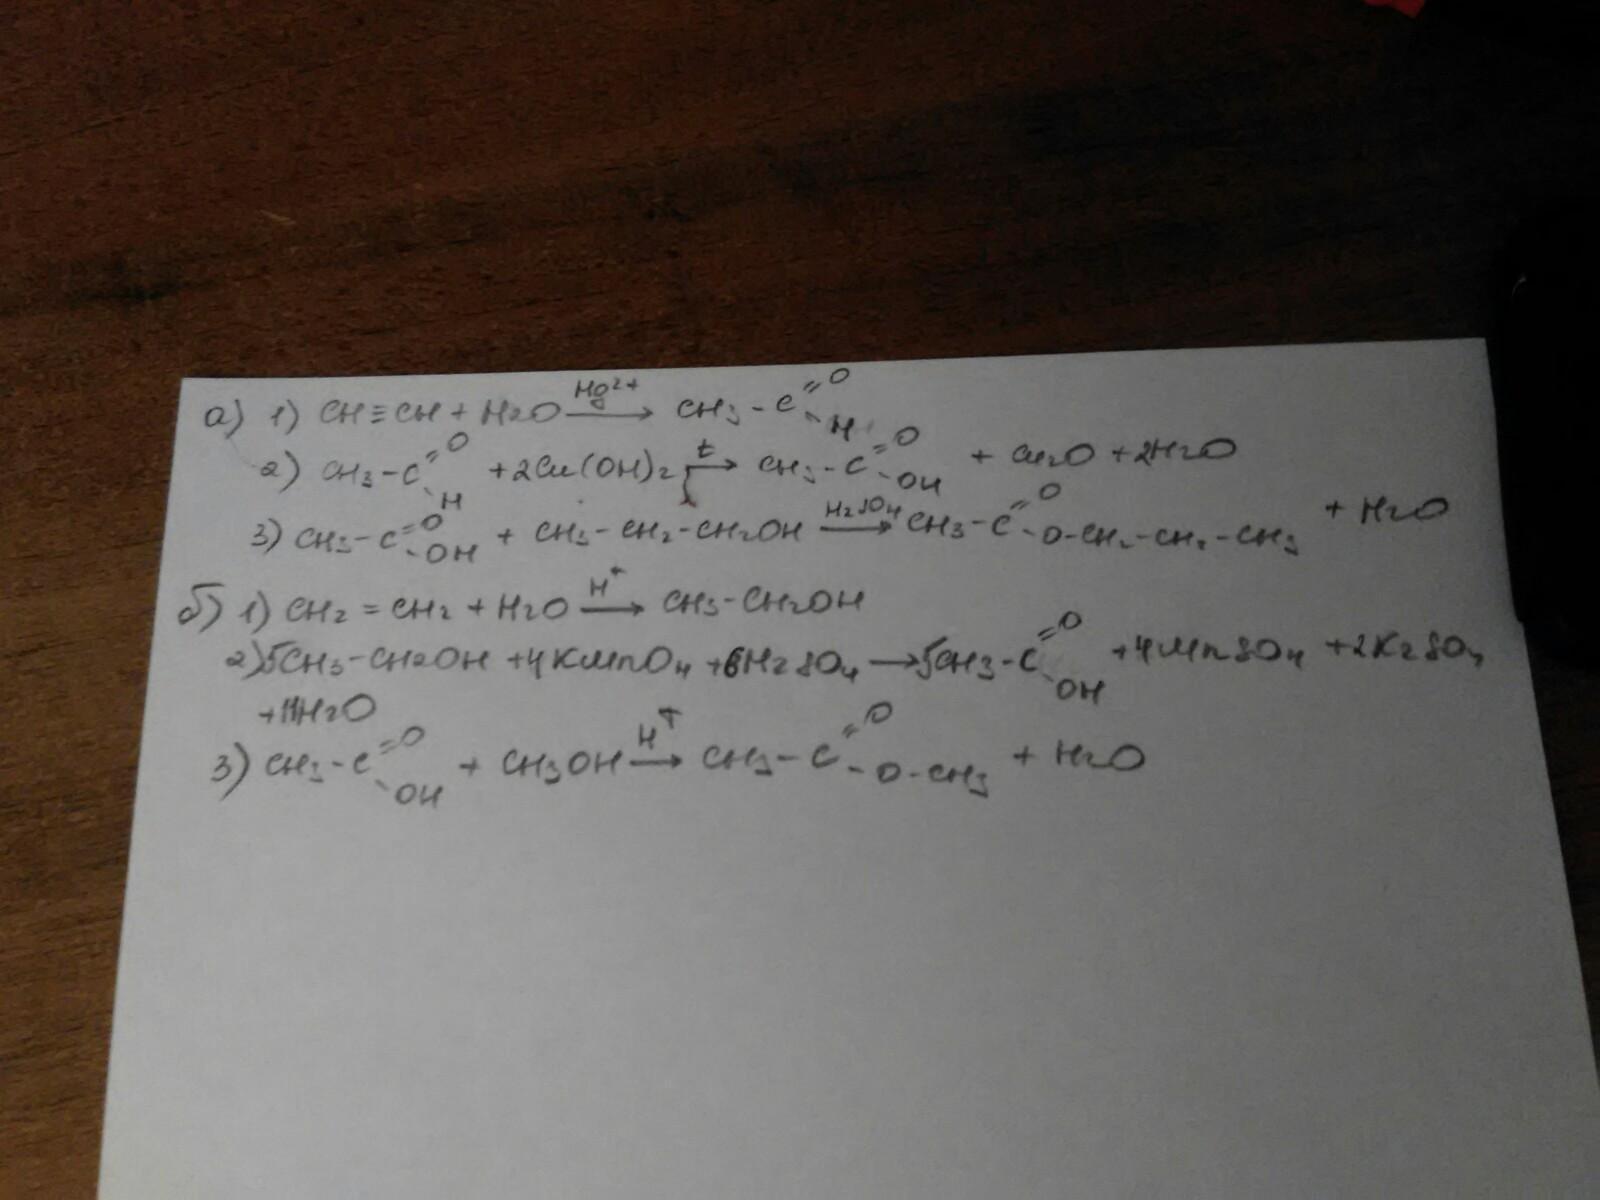 а) 1) CH≡CH + H2O Hg2+ → CH3-C=O-H
2) CH3-C=O-H + 2Cu(OH)2 t → CH3-C=O-OH + Cu2O + 2H2O
3) CH3-C=O-OH + CH3-CH2-CH2OH H2SO4 → CH3-C=O-O-CH2-CH2-CH3 + H2O
б) 1) CH2=CH2 + H2O H+ → CH3-CH2OH
2) 5CH3-CH2OH + 4KMnO4 + 6H2SO4 → 5CH3-C=O-OH + 4MnSO4 + 2K2SO4
+ 11H2O
3) CH3-C=O-OH + CH3OH H+ → CH3-C=O-O-CH3 + H2O